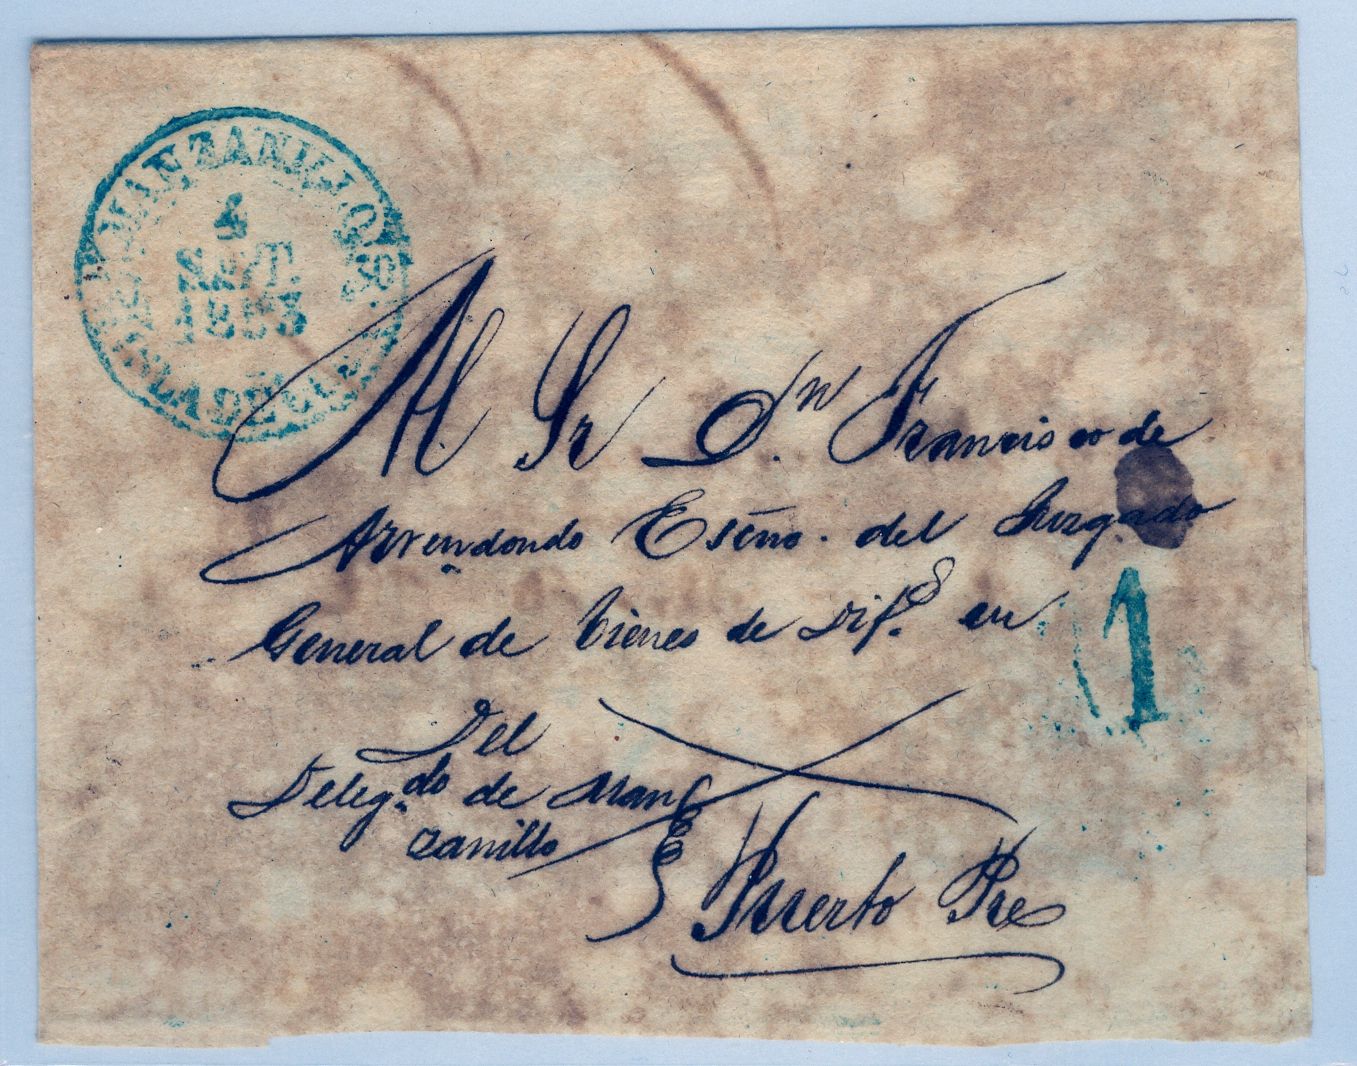 MANZANILLO S.
4
SET.
1853
ISLA DE CUBA
Al Sr Dn. Francisco de
Arrendondo Escno. del Juzgado
General de bienes de Difs. en
1
Del
Delegdo. de Man
zanillo
Puerto Pre